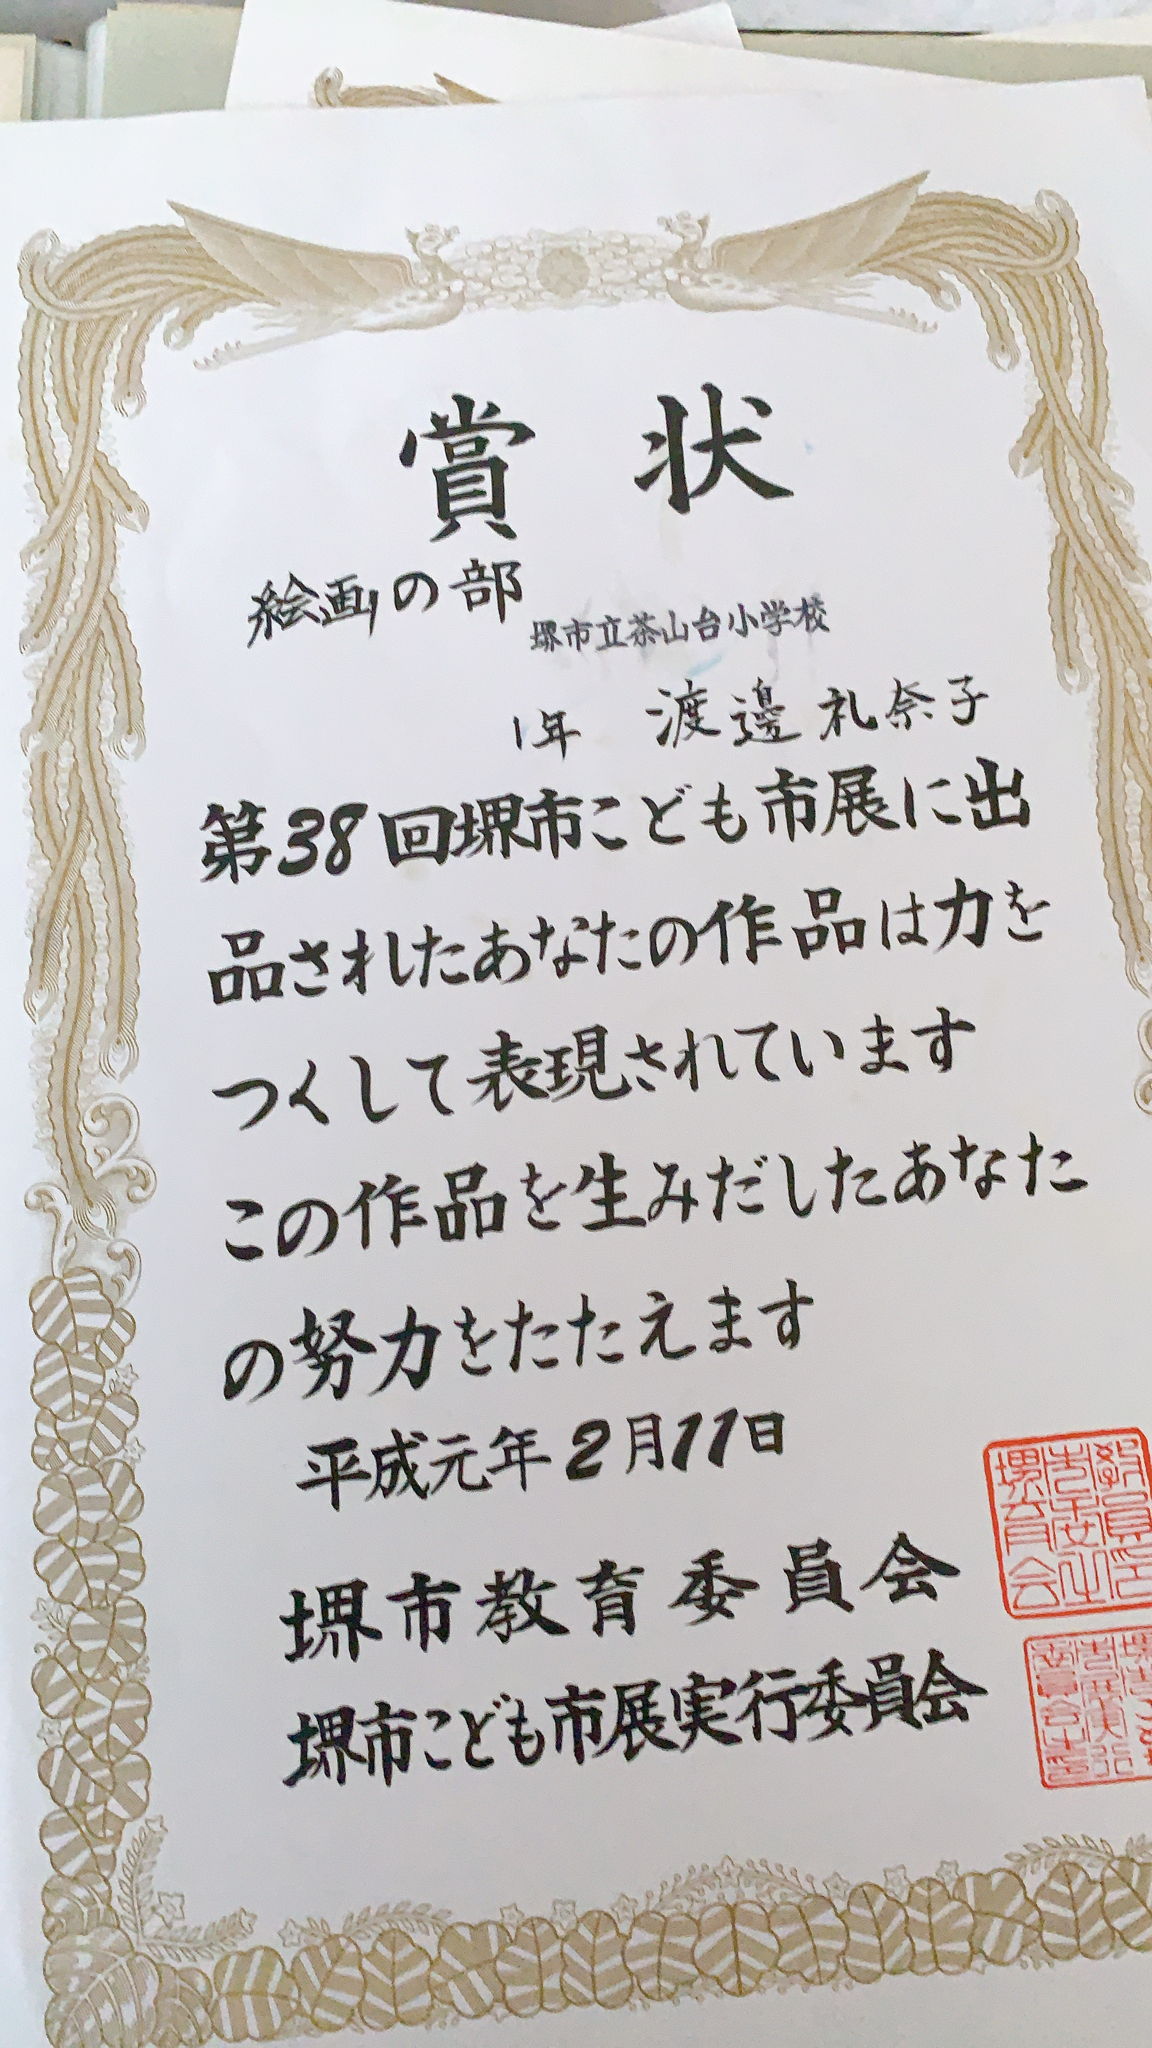 賞状
絵画の部
堺市立茶山台小学校
1年 渡邊礼奈子
第38回堺市こども市展に出
品されたあなたの作品は力を
つくして表現されています
この作品を生みだしたあなた
の努力をたたえます
平成元年2月11日
堺市教育委員会
堺市こども市展実行委員会